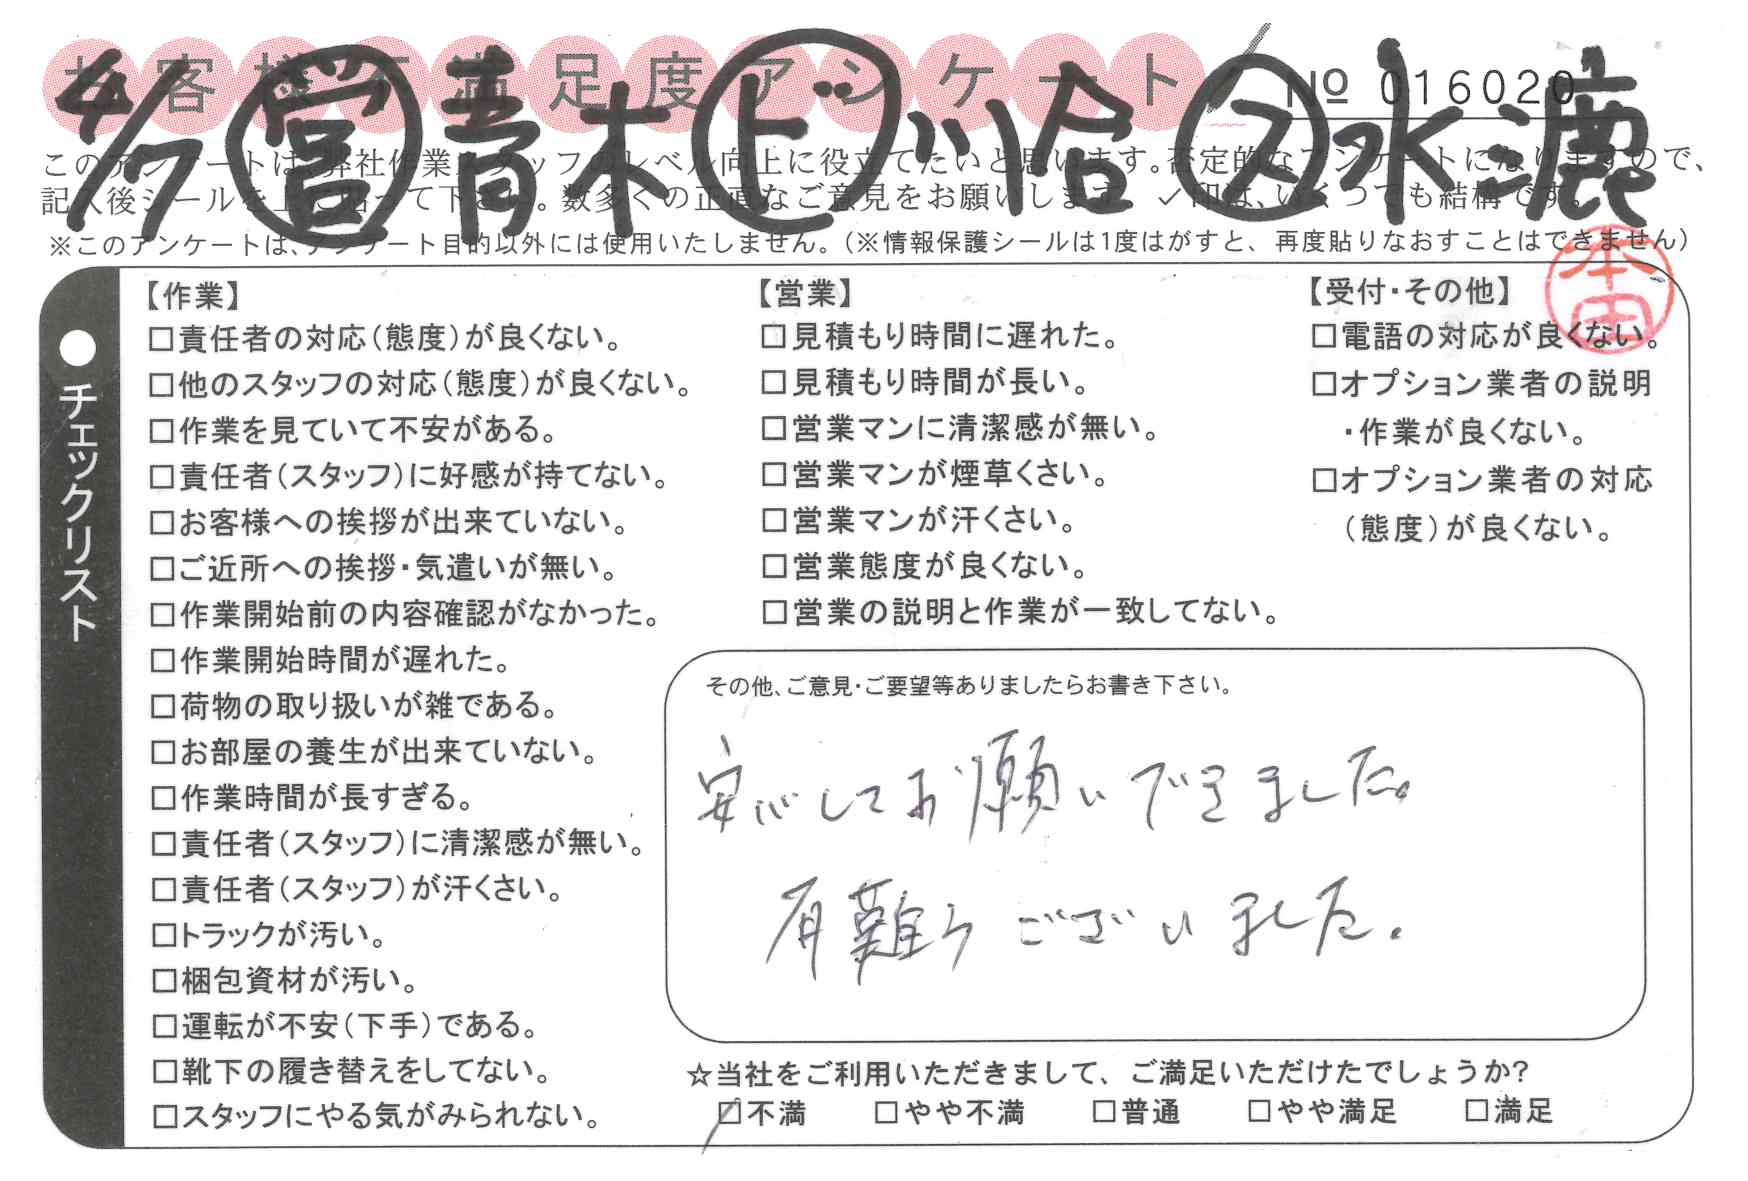 お客様不満足度アンケート
№ 016020
4/7 営 青木 ド 川合 ス 水漉
このアンケートは、弊社作業スタッフのレベル向上に役立てたいと思います。否定的なアンケートになりますので、
記入後シールを上に貼って下さい。数多くの正直なご意見をお願いします。✓印は、いくつでも結構です。
※このアンケートは、アンケート目的以外には使用いたしません。(※情報保護シールは1度はがすと、再度貼りなおすことはできません)
本田
●チェックリスト
【作業】
□責任者の対応(態度)が良くない。
□他のスタッフの対応(態度)が良くない。
□作業を見ていて不安がある。
□責任者(スタッフ)に好感が持てない。
□お客様への挨拶が出来ていない。
□ご近所への挨拶・気遣いが無い。
□作業開始前の内容確認がなかった。
□作業開始時間が遅れた。
□荷物の取り扱いが雑である。
□お部屋の養生が出来ていない。
□作業時間が長すぎる。
□責任者(スタッフ)に清潔感が無い。
□責任者(スタッフ)が汗くさい。
□トラックが汚い。
□梱包資材が汚い。
□運転が不安(下手)である。
□靴下の履き替えをしてない。
□スタッフにやる気がみられない。
【営業】
□見積もり時間に遅れた。
□見積もり時間が長い。
□営業マンに清潔感が無い。
□営業マンが煙草くさい。
□営業マンが汗くさい。
□営業態度が良くない。
□営業の説明と作業が一致してない。
【受付・その他】
□電話の対応が良くない。
□オプション業者の説明
・作業が良くない。
□オプション業者の対応
(態度)が良くない。
その他、ご意見・ご要望等ありましたらお書き下さい。
安心してお願いできました。
有難うございました。
☆当社をご利用いただきまして、ご満足いただけたでしょうか?
☑不満 □やや不満 □普通 □やや満足 □満足